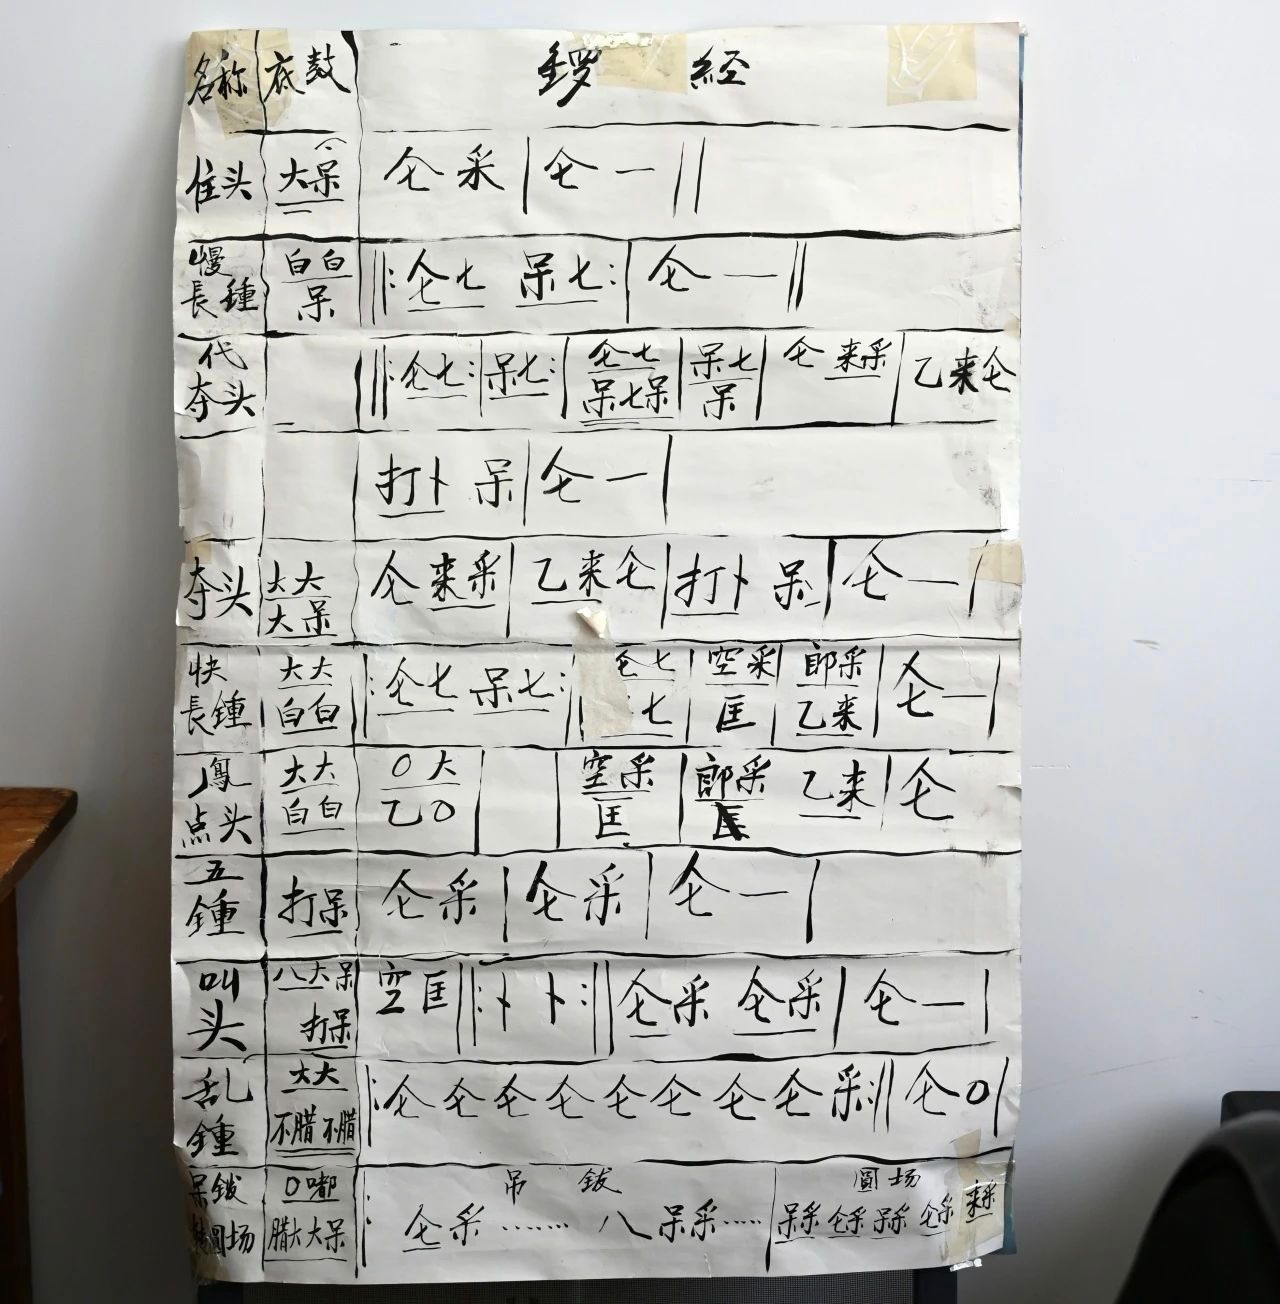 名称 底鼓 锣 经
住头 大呆 仓 采 | 仓 一 ||
慢長錘 白白呆 ||: 仓七 呆七 :| 仓 一 ||
代夺头 ||: 仓七 :| 呆七 :| 仓七呆七呆 | 呆七呆 | 仓 来采 | 乙来仓
打卜 呆 | 仓 一 |
夺头 大大大呆 仓 来采 | 乙来仓 | 打卜 呆 | 仓 一 |
快長錘 大大白白 |: 仓七 呆七 :| 仓七 七 | 空采匡 | 郎采乙来 | 仓 一 |
鳳点头 大大白白 0大乙0 | | 空采匡 | 郎采 乙来 | 仓
五錘 打呆 仓 采 | 仓 采 | 仓 一 |
叫头 八大呆打呆 空匡 ||: 卜 卜 :|| 仓采 仓采 | 仓 一 |
乱錘 大大不腊不腊 |: 仓 仓 仓 仓 仓 仓 仓 仓 采 :|| 仓 0 |
吊 鈸 圓场
呆鈸圓场 0嘟腊大大呆 |: 仓采 …… 八 呆采 …… | 呆采 仓采 呆采 仓采 来采